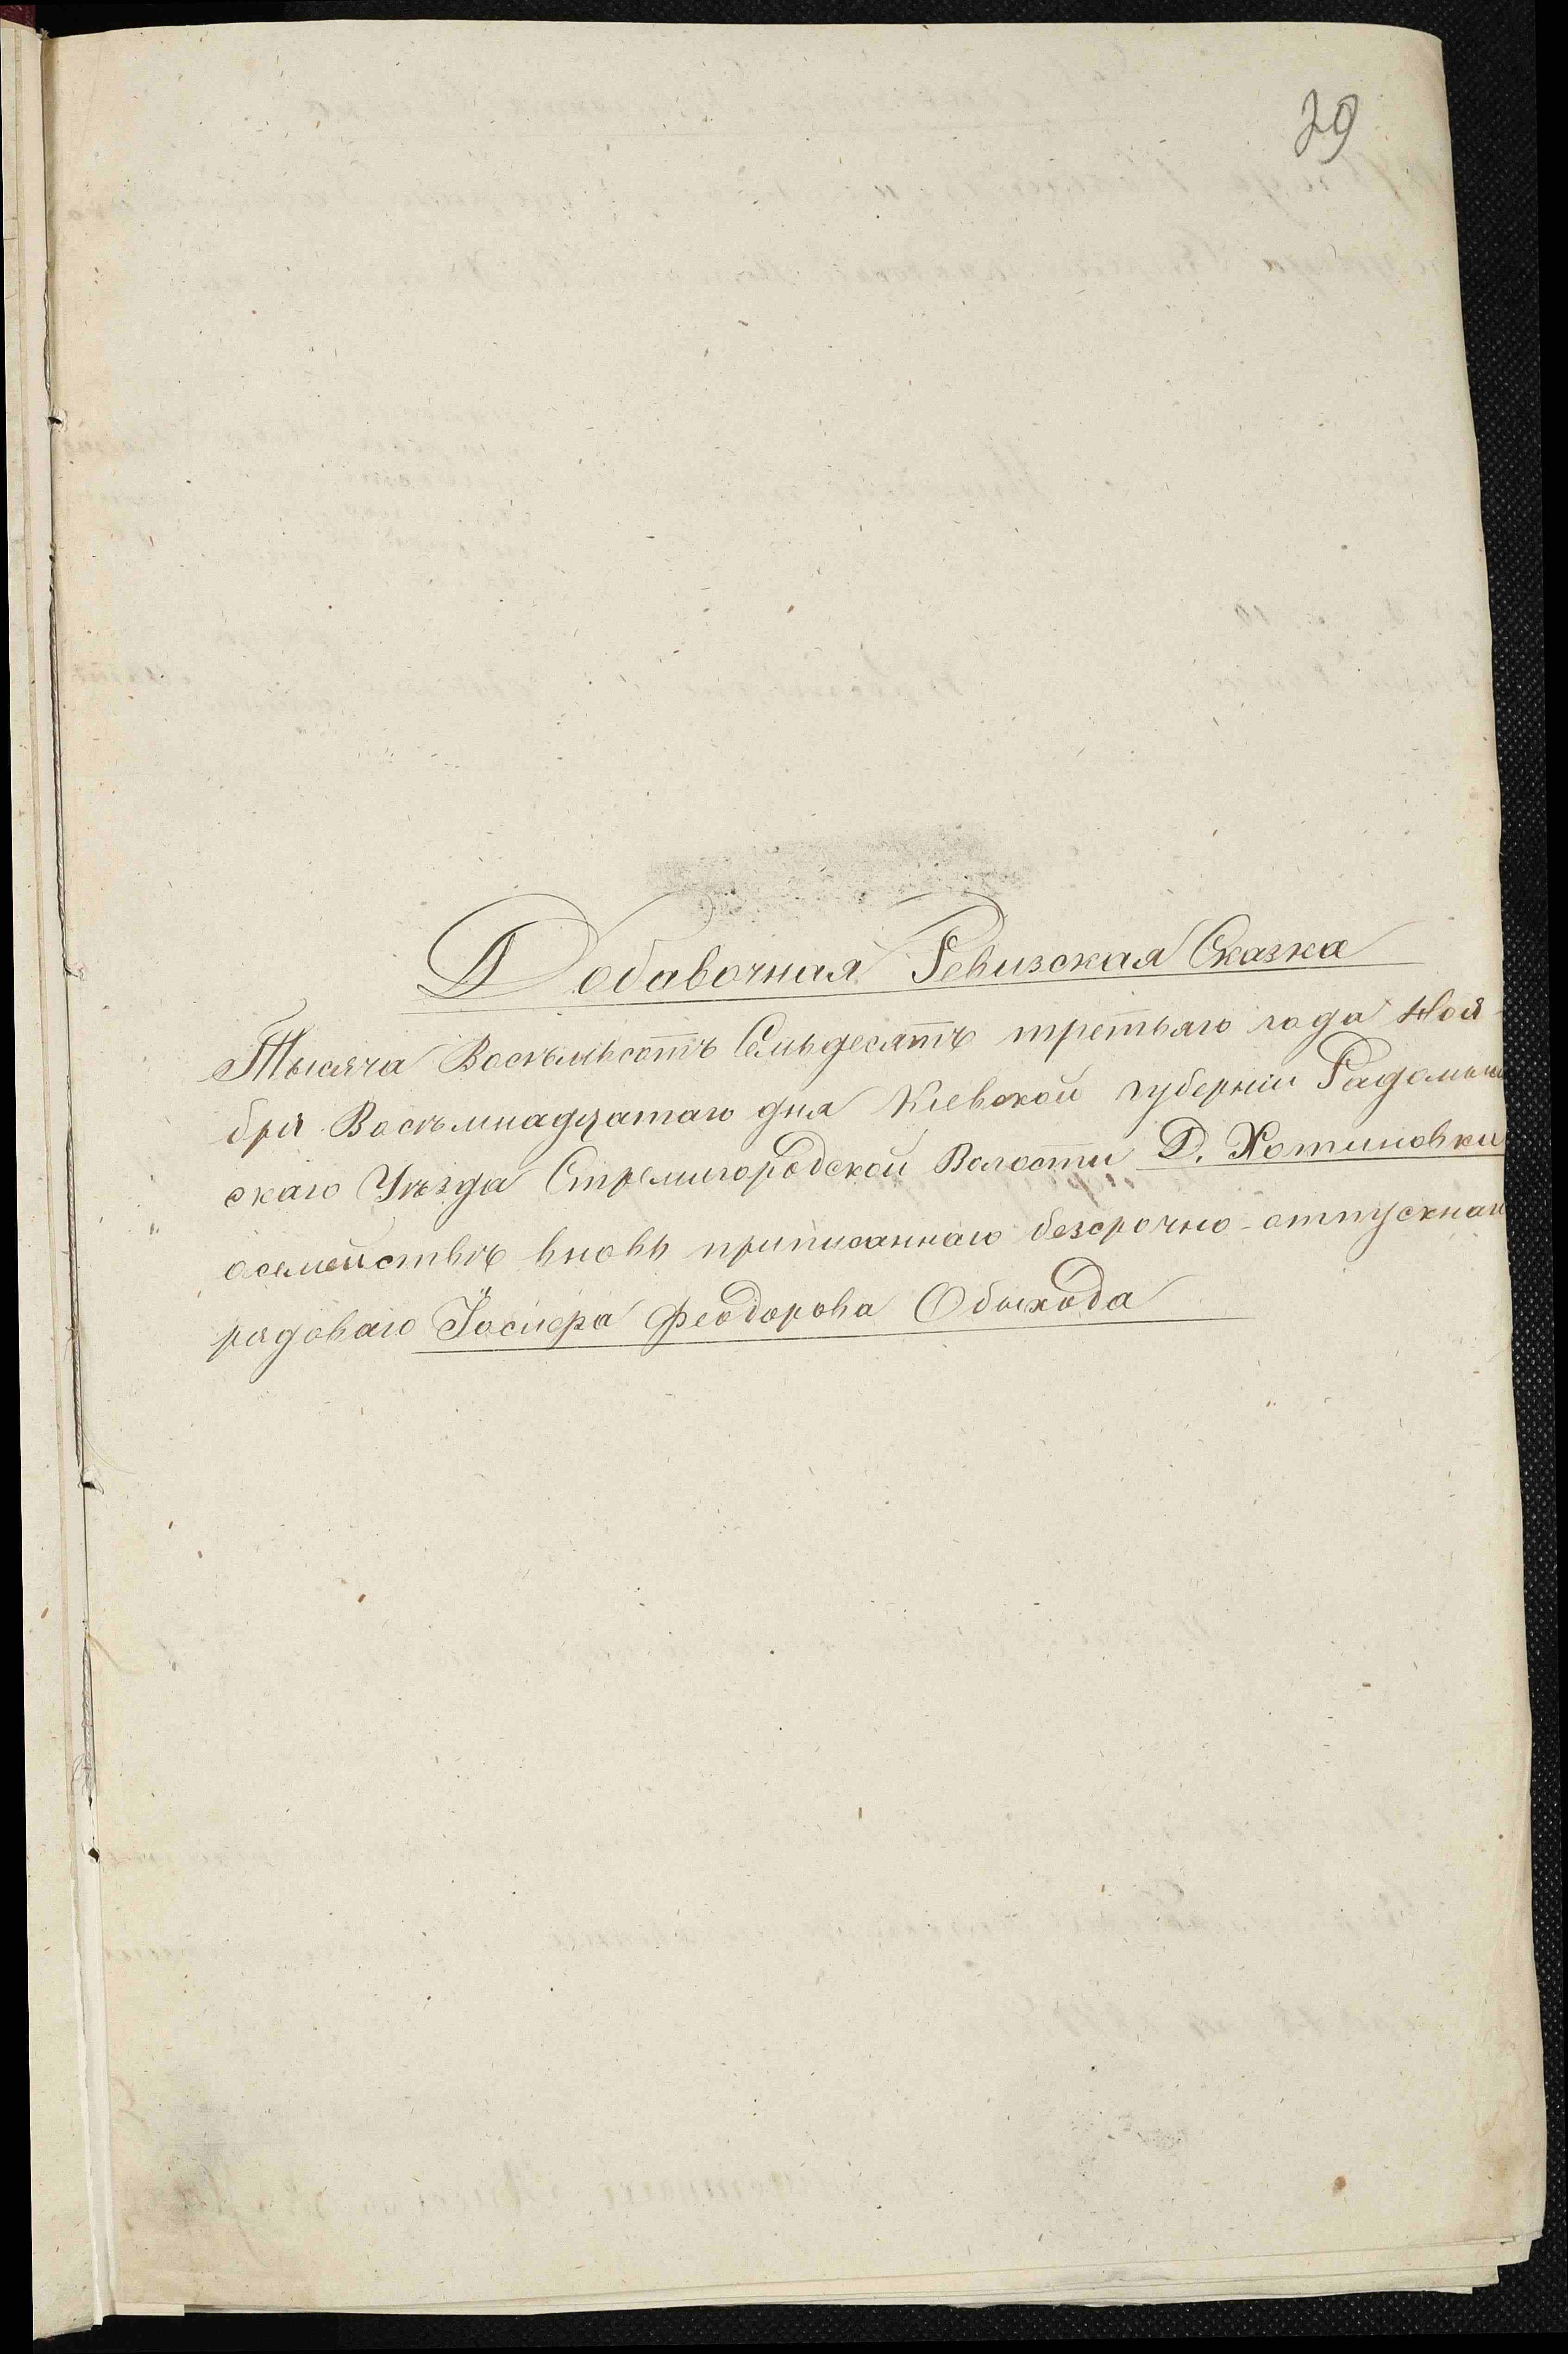 29
Добавочная Ревизская Сказка
Тысяча Восѣмьсотъ Семьдесятъ третьяго года Ноя-
бря Восѣмнадцатаго дня Кіевской губерніи Радомысль
скаго Уѣзда Стремигородской Волости Д. Хотиновки
осемействѣ вновь приписаннаго безсрочно-отпускнаго
рядоваго Іосифа Феодорова Обихода